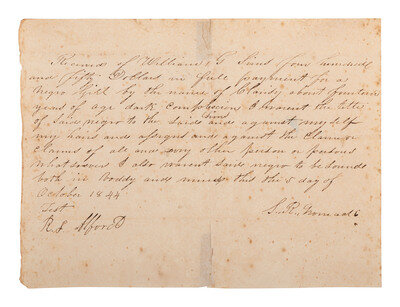 Received of William G Sims four hundred
and fifty Dollars in full payment for a
Negro Gill by the name of Clandy about fourteen
years of age dark complecion I warent the title
of said negro to the said Sims and against my self
my hairs and assigns and against the
claims of all and any other person or persons
whatsoever I also warent said negro to be sound
both in boddy and mind this the 5 day of
October 1844
Test
R. L Alford
S. R.